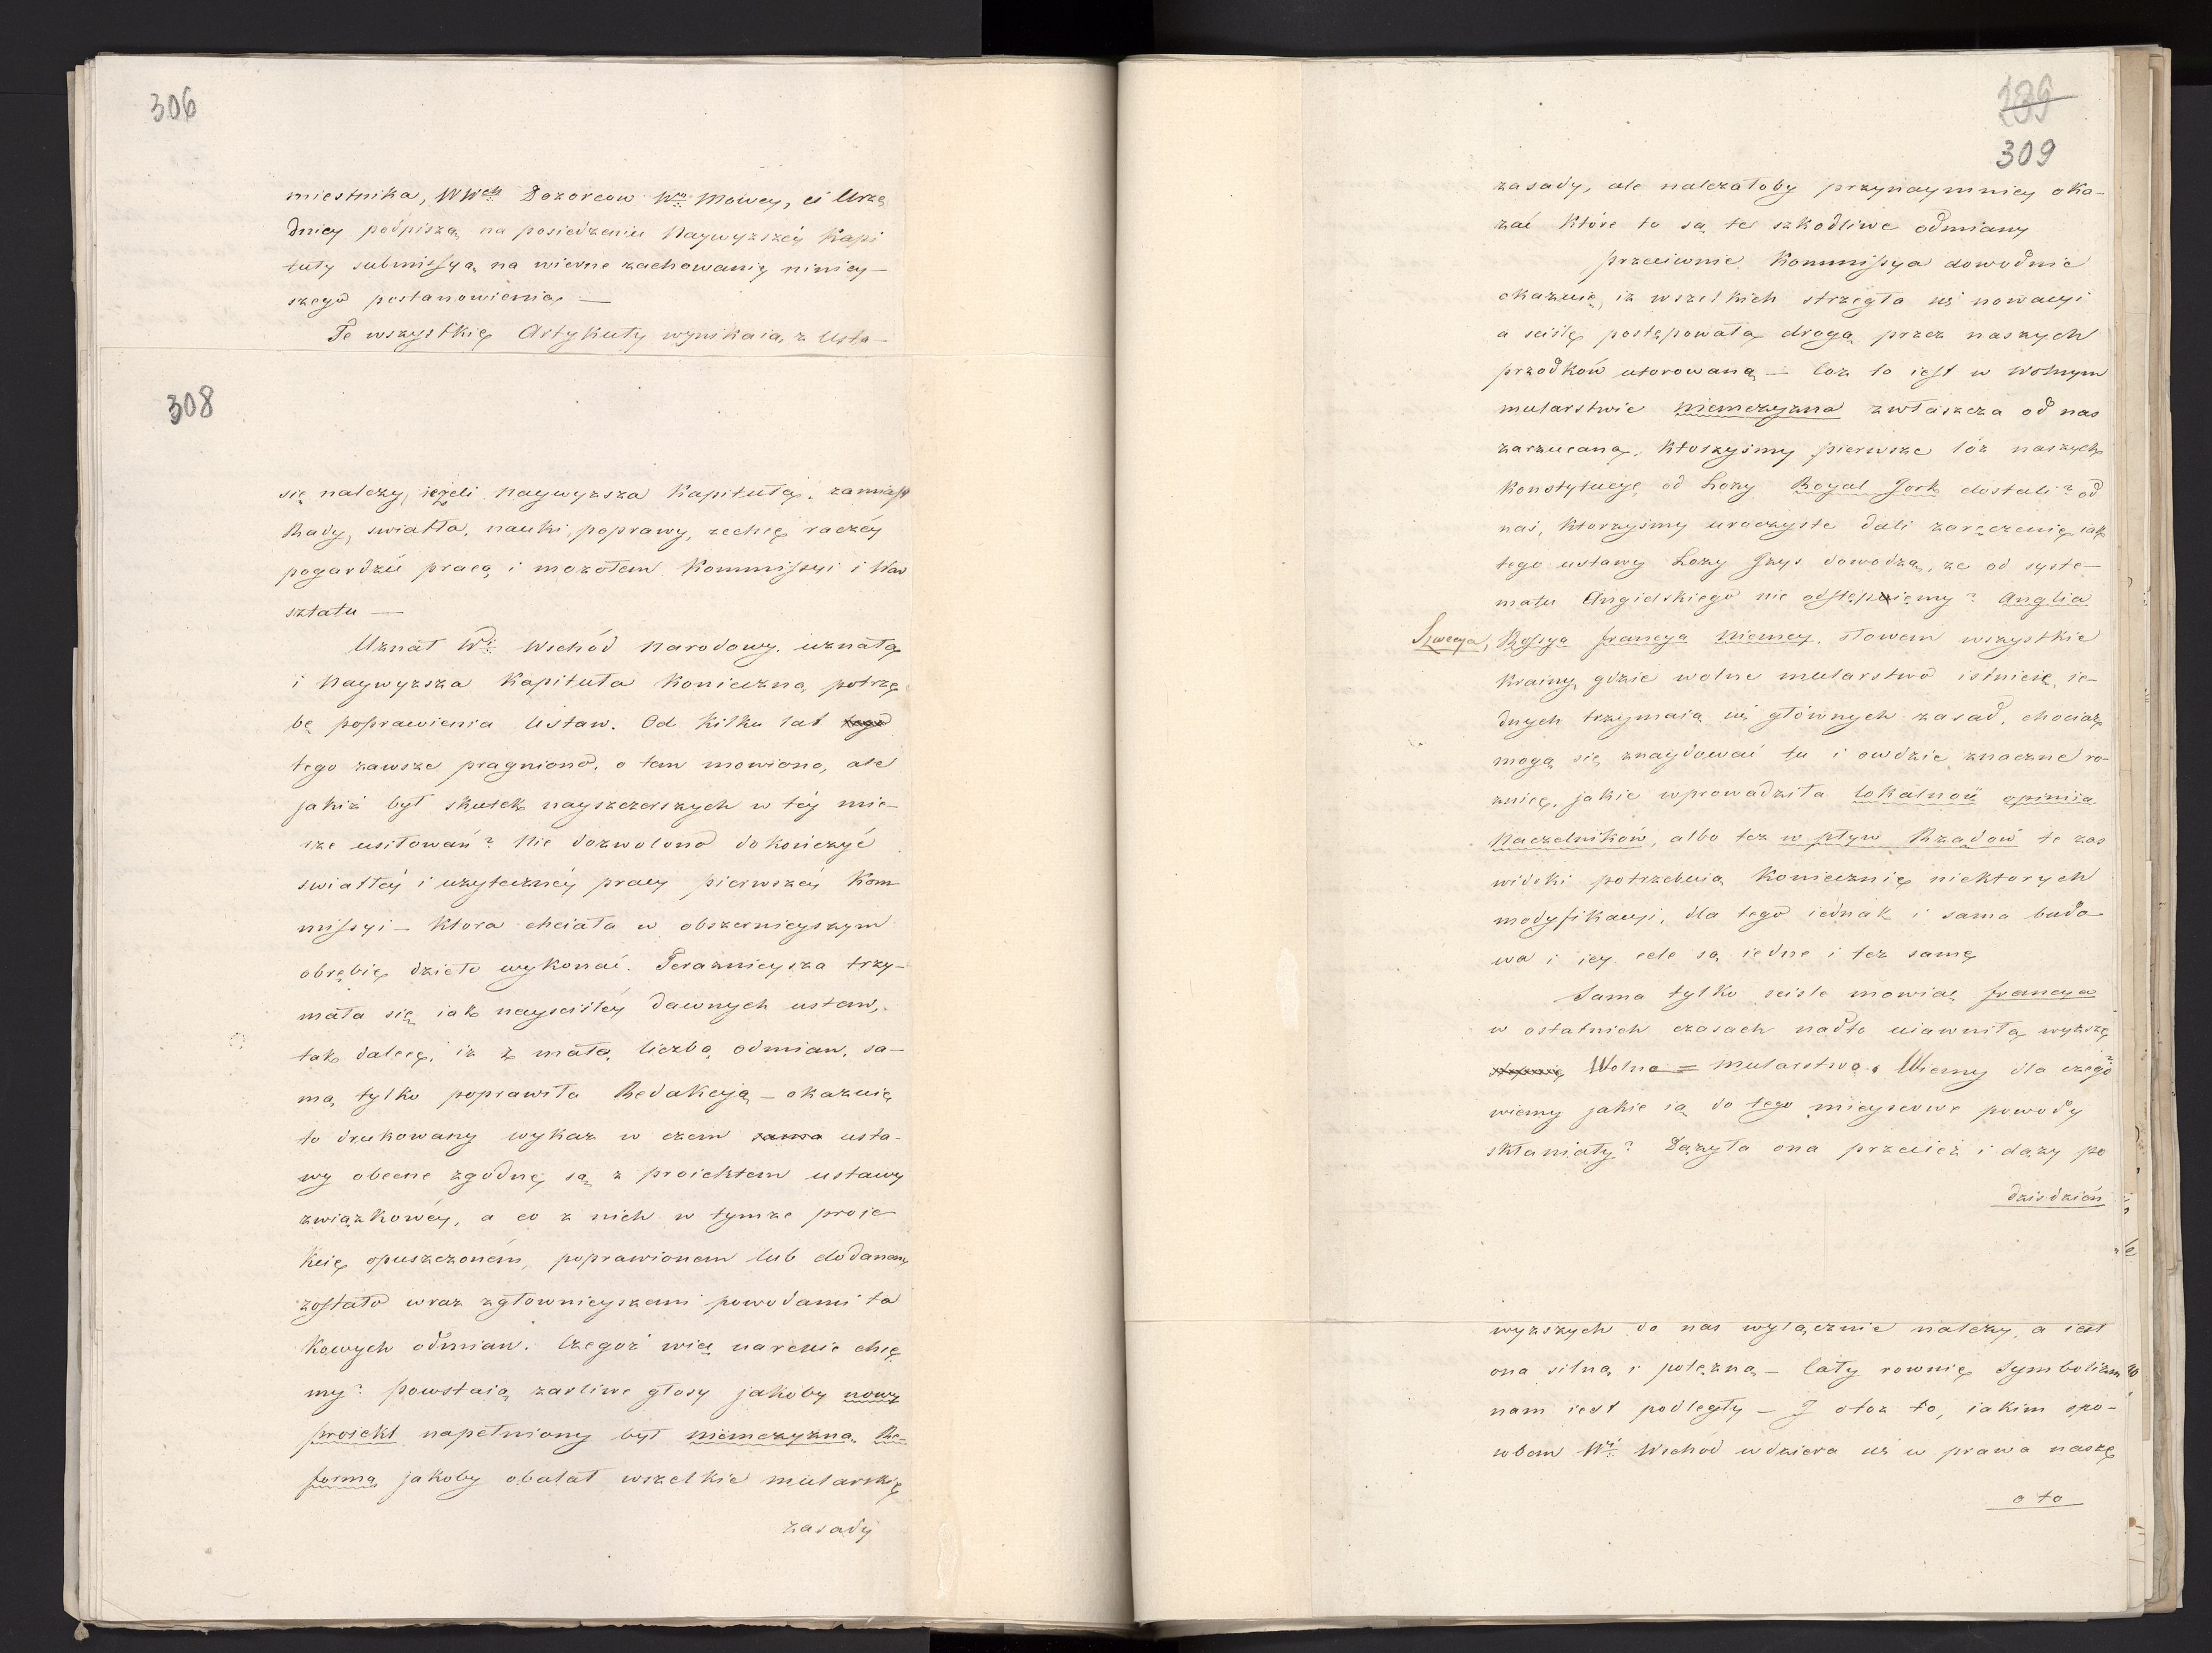 306
miestnika, WWch Dozorcow Wo: Mowcy, ci Urzę
dnicy podpiszą na posiedzeniu Naywyzszéy Kapi
tuły submissyą na wierne zachowanie niniey—
szego postanowienia —
Te wszystkie Artykuły wynikaią z Usta—
308
się nalezy, iezeli naywyzsza Kapituła, zamiast
Rady, swiatła, nauki, poprawy, zechce raczéy
pogardzić pracą i mozołem Kommissyi i War
sztatu —
Uznał Wi: Wschód Narodowy, uznała
i Naywyzsza Kapituła konieczną potrze
bę poprawienia Ustaw. Od kilku lat tego
tego zawsze pragniono, o tem mowiono, ale
jakiż był skutek nayszczerszych w téy mie—
rze usiłowań? Nie dozwolono dokończyć
swiatłéy i uzytecznéy pracy pierwszéy Kom
missyi — ktora chciała w obszernieyszym
obrębie dzieło wykonać. Teraznieysza trzy—
mała się iak nayscisléy dawnych ustaw,
tak dalece, iz z małą liczbą odmian, sa—
mą tylko poprawiła Redakcyą — okazuie
to drukowany wykaz w czem sama usta-
wy obecne zgodne są z proiektem ustawy
związkowéy, a co z nich w tymze proie
kcie opuszczoném, poprawionem lub dodanem
zostało wraz z głownieyszemi powodami ta
kowych odmian. Czegoż więc nareście chce
my? powstaią zarliwe głosy jakoby nowy
proiekt napełniony był niemczyzną, Re—
forma jakoby obalał wszelkie mularskie
zasady
239
309
zasady, ale nalezałoby przynaymniey oka—
zać które to są te szkodliwe odmiany
Przeciwnie Kommissya dowodnie
okazuie, iz wszelkich strzegła się nowacyi
a sciśle postępowała drogą przez naszych
przodków utorowaną — Coz to iest w Wolnym
mularstwie niemczyzna zwłaszcza od nas
zarzucana, ktorzyśmy pierwsze lóz naszych
konstytucye od Lozy Royal York dostali? od
nas, ktorzyśmy uroczyste dali zaręczenie, iak
tego ustawy Lozy Jzys dowodzą, ze od syste—
matu Angielskiego nie odstępuiemy? Anglia
Szwecya, Rossya Francya Niemcy, słowem wszystkie
krainy, gdzie wolne mularstwo istnieie, ie—
dnych trzymaią się głównych zasad, chociaz
mogą się znaydować tu i owdzie znaczne ro—
znice, jakie wprowadziła lokalność opiniia
Naczelników, albo tez wpływ Rządow te zas
widoki potrzebuią koniecznie niektorych
modyfikacyi, dla tego iednak i sama budo
wa i iey cele są iedne i tez same
Sama tylko scisle mowiąc Francya
w ostatnich czasach nadto uiawniła wyzsze
Wolno = mularstwo. Wiemy dla czego?
wiemy jakie ią do tego mieyscowe powody
skłaniały? Dązyła ona przecież i dązy po
dzisdzień
wyzszych do nas wyłącznie nalezy, a iest
ona silną i potęzną — Cały rownie Symbolizm
nam iest podległy — J otoz to, iakim spo—
sobem Wi: Wschód wdziera się w prawa nasze
oto